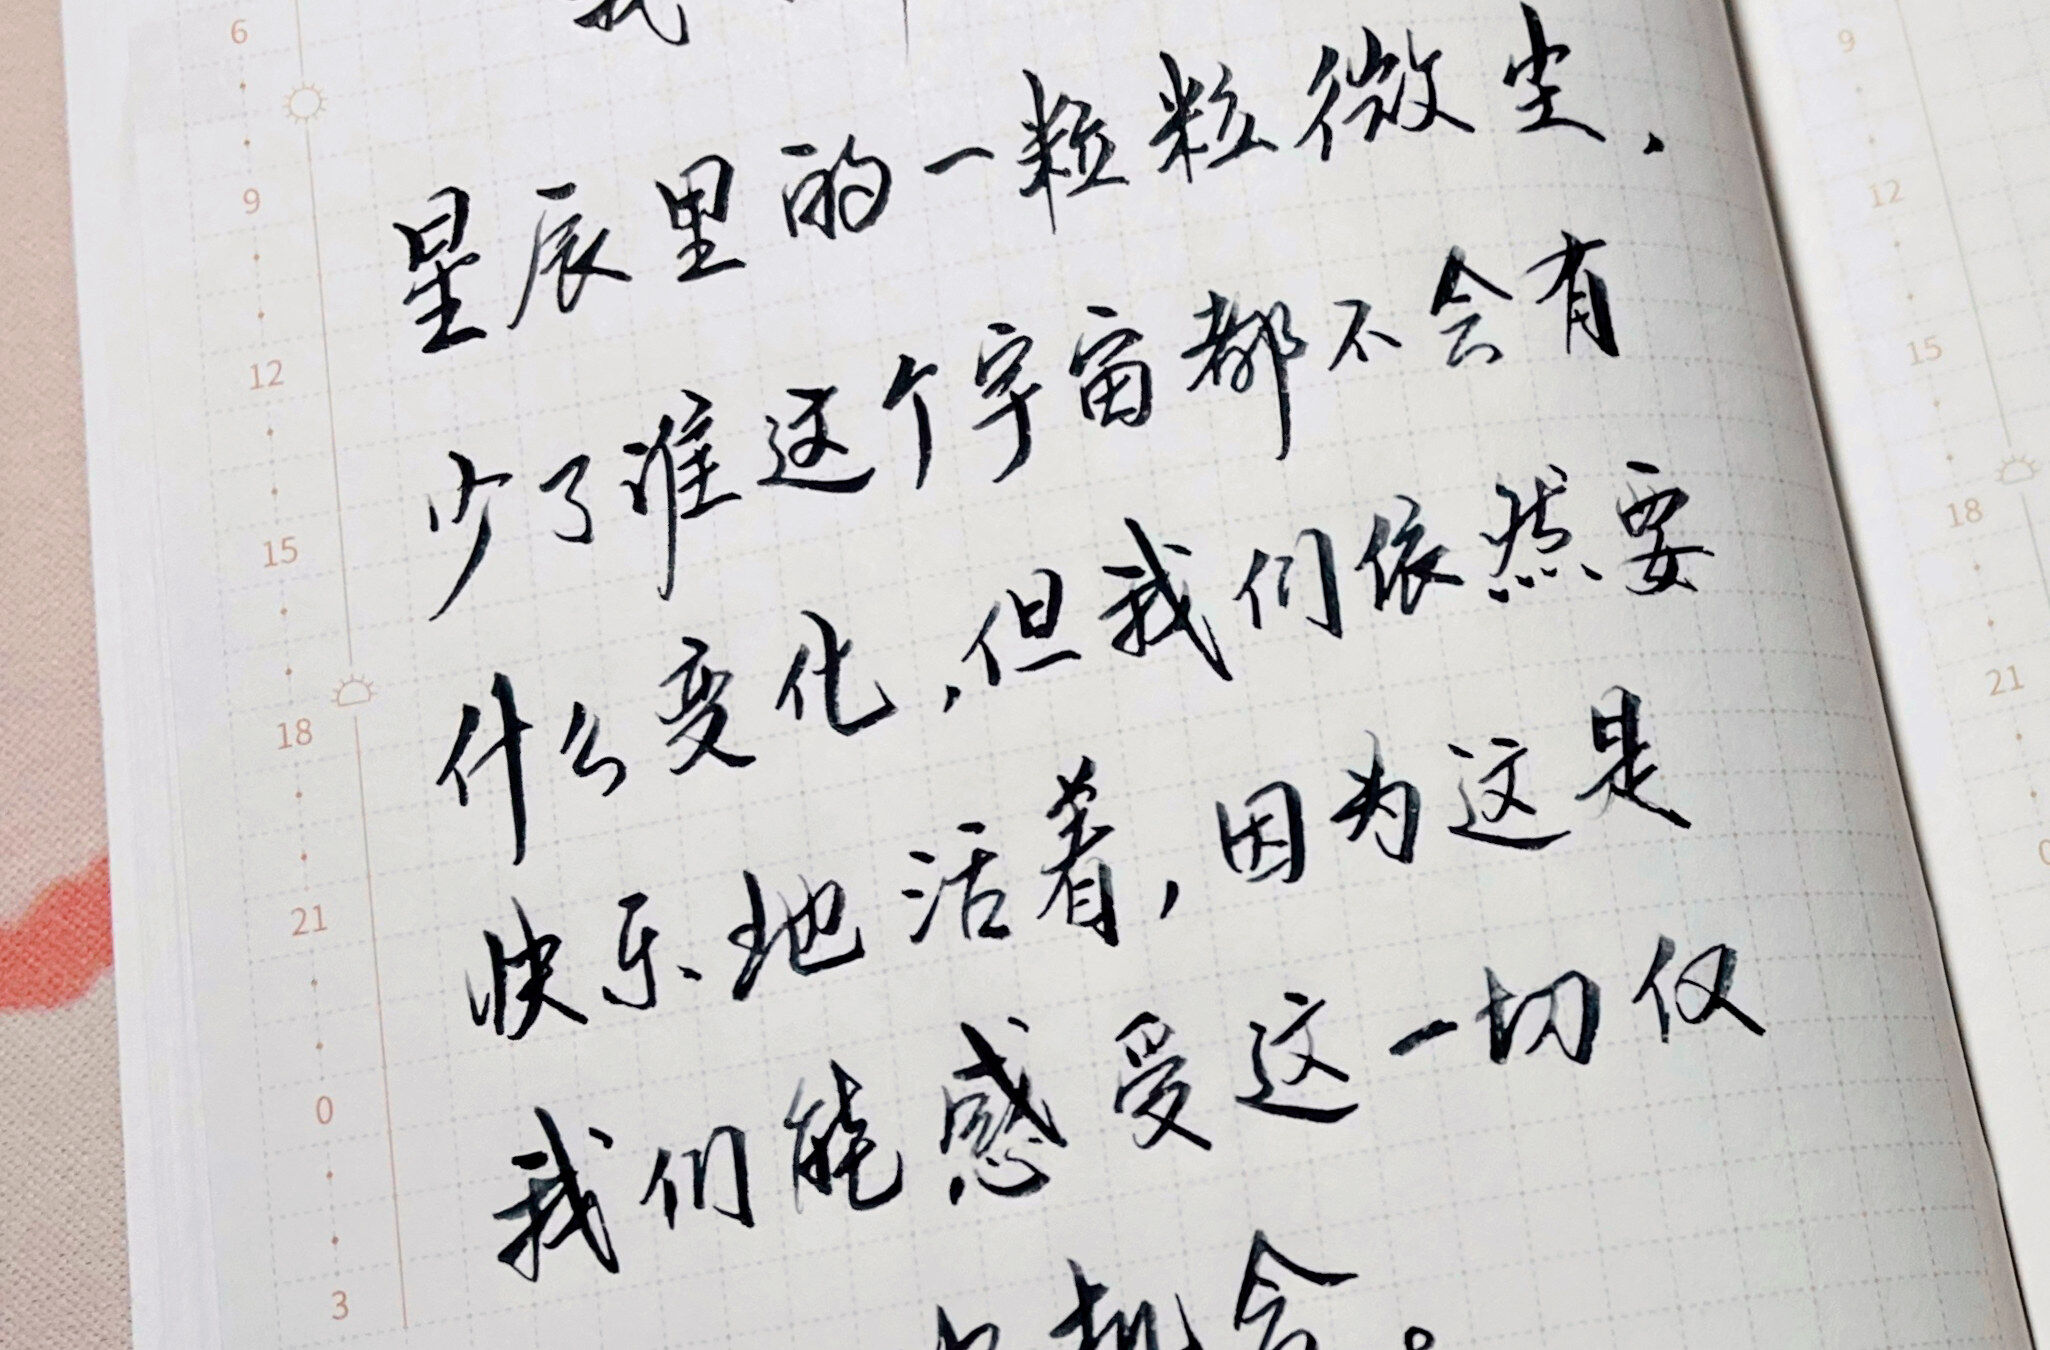 我
星辰里的一粒粒微尘，
少了谁这个宇宙都不会有
什么变化，但我们依然要
快乐地活着，因为这是
我们能感受这一切仅
机会。
6
9
12
15
18
21
0
3
9
12
15
18
21
0